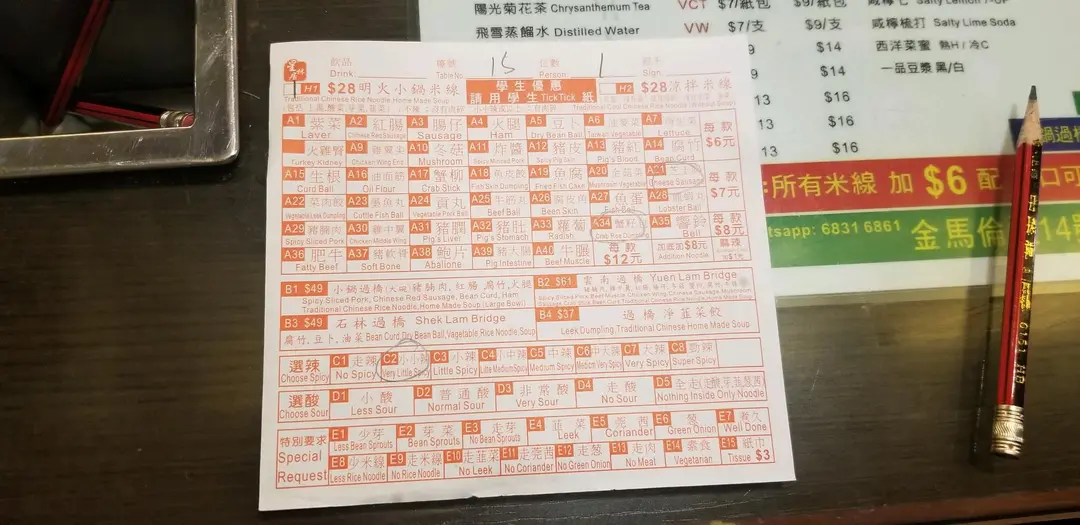 陽光菊花茶 Chrysanthemum Tea VCT $7/紙包 $9/紙包
飛雪蒸餾水 Distilled Water VW $7/支 $9/支
咸檸七 Salty Lemon 7-UP
咸檸梳打 Salty Lime Soda
$14 西洋菜蜜 熱H / 冷C
$14 一品豆漿 黑/白
13 $16
13 $16
13 $16
:所有米線 加 $6 配
tsapp: 6831 6861
飲品 Drink: 檯號 Table No. 15 位數 Person: 1 Sign:
H1 $28 明火小鍋米線
Traditional Chinese Rice Noodle, Home Made Soup
學生優惠
請用學生 TickTick 紙
H2 $28 涼拌米線
A1 紫菜 Laver
A2 紅腸 Chinese Red Sausage
A3 腸仔 Sausage
A4 火腿 Ham
A5 豆卜 Dry Bean Ball
A6
A7 Lettuce
每款 $6元
火雞腎 Turkey Kidney
A9 Chicken Wing End
A10 冬菇 Mushroom
A11 炸醬 Spicy Minced Pork
A12 豬皮 Spicy Pig Skin
A13 豬紅 Pig's Blood
A14 腐竹 Bean Curd
A15 生根 Curd Ball
A16 油面筋 Oil Flour
A17 蟹柳 Crab Stick
A18 魚皮餃 Fish Skin Dumpling
A19 魚腐 Fried Fish Cake
A20
A21 Chinese Sausage
每款 $7元
A22 菜肉餃
A23 墨魚丸 Cuttle Fish Ball
A24 貢丸 Vegetable Pork Ball
A25 牛筋丸 Beef Ball
A26 Been Skin
A27 魚蛋 Fish Ball
A28 Lobster Ball
A29 豬腩肉 Spicy Sliced Pork
A30 雞中翼 Chicken Middle Wing
A31 豬膶 Pig's Liver
A32 豬肚 Pig's Stomach
A33 蘿蔔 Radish
A34
A35 Bell
每款 $8元
A36 肥牛 Fatty Beef
A37 豬軟骨 Soft Bone
A38 鮑片 Aballone
A39 豬大腸 Pig Intestine
A40 牛𦟌 Beef Muscle
每款 $12元
加底加$8元 Addition Noodle
B1 $49 小鍋過橋(大碗)豬腩肉, 紅腸, 腐竹, 火腿
Spicy Sliced Pork, Chinese Red Sausage, Bean Curd, Ham
Traditional Rice Noodle, Home Made Soup (Large Bowl)
B2 $61 雲南過橋 Yuen Lam Bridge
B3 $49 石林過橋 Shek Lam Bridge
腐竹, 豆卜, 油菜 Bean Curd, Dry Bean Ball, Vegetable, Rice Noodle, Soup
B4 $37 過橋淨韮菜餃
Leek Dumpling, Traditional Chinese Home Made Soup
選辣 Choose Spicy
C1 走辣 No Spicy
C2 小小辣 Very Little Spicy
C3 小辣 Little Spicy
C4 小中辣 Little Medium Spicy
C5 中辣 Medium Spicy
C6 中大辣 Medium Very Spicy
C7 大辣 Very Spicy
C8 勁辣 Super Spicy
選酸 Choose Sour
D1 小酸 Less Sour
D2 普通酸 Normal Sour
D3 非常酸 Very Sour
D4 走酸 No Sour
D5 Nothing Inside Only Noodle
特別要求 Special Request
E1 少芽 Less Bean Sprouts
E2 芽菜 Bean Sprouts
E3 走芽 No Bean Sprouts
E4 韮菜 Leek
E5 芫茜 Coriander
E6 葱 Green Onion
E7 煮久 Well Done
E8 少米線 Less Rice Noodle
E9 走米線 No Rice Noodle
E10 走韮菜 No Leek
E11 走芫茜 No Coriander
E12 走葱 No Green Onion
E13 走肉 No Meat
E14 素食 Vegetarian
E15 紙巾 Tissue $3
6151 HB